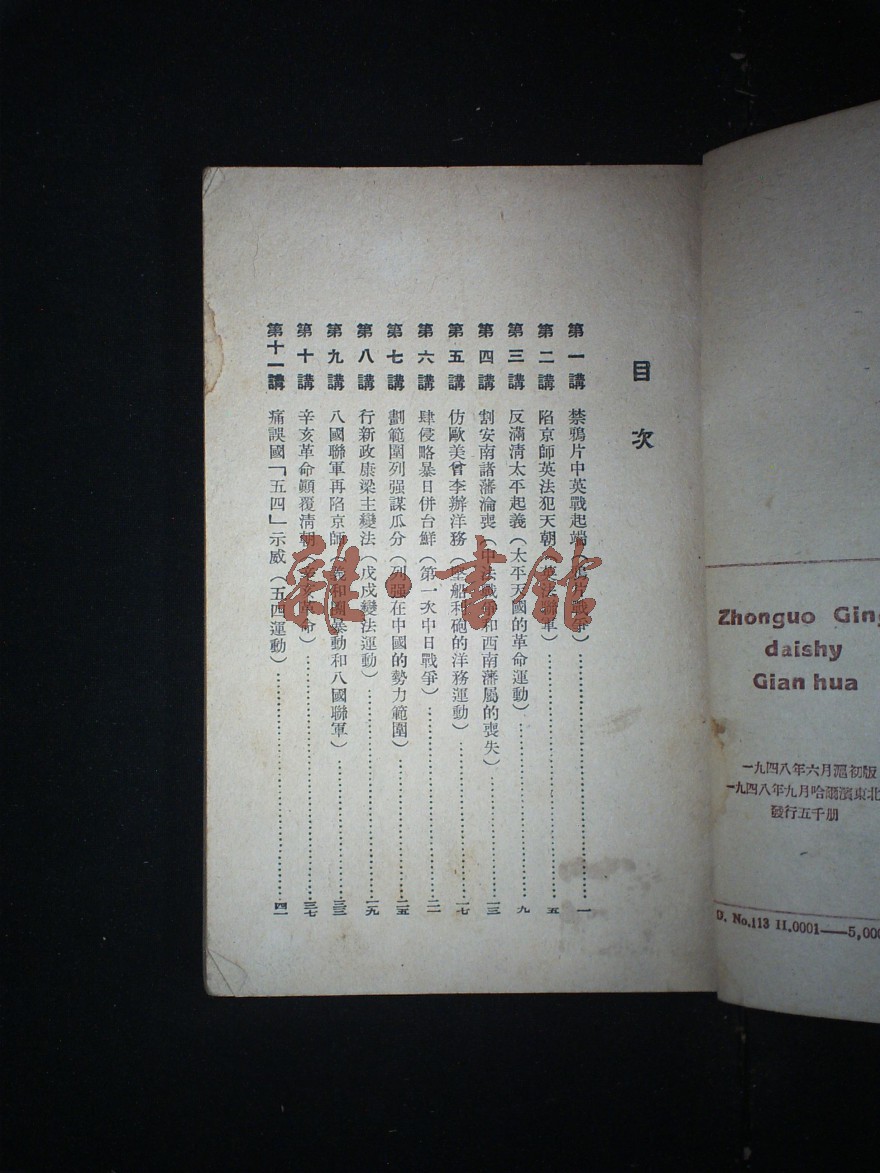 目次
第一講 禁鴉片中英戰起端（鴉片戰爭）……一
第二講 陷京師英法犯天朝（英法聯軍）……五
第三講 反滿淸太平起義（太平天國的革命運動）……九
第四講 割安南諸藩淪喪（中法戰爭和西南藩屬的喪失）……一三
第五講 仿歐美曾李辦洋務（堅船利砲的洋務運動）……一七
第六講 肆侵略暴日併台鮮（第一次中日戰爭）……二一
第七講 劃範圍列强謀瓜分（列强在中國的勢力範圍）……二五
第八講 行新政康梁主變法（戊戌變法運動）……二九
第九講 八國聯軍再陷京師（義和團暴動和八國聯軍）……三三
第十講 辛亥革命顚覆淸朝（辛亥革命）……三七
第十一講 痛誤國「五四」示威（五四運動）……四一
雜·書館
Zhonguo Ging
daishy
Gian hua
一九四八年六月滬初版
一九四八年九月哈爾濱東北
發行五千册
D. No.113 II.0001—5,000